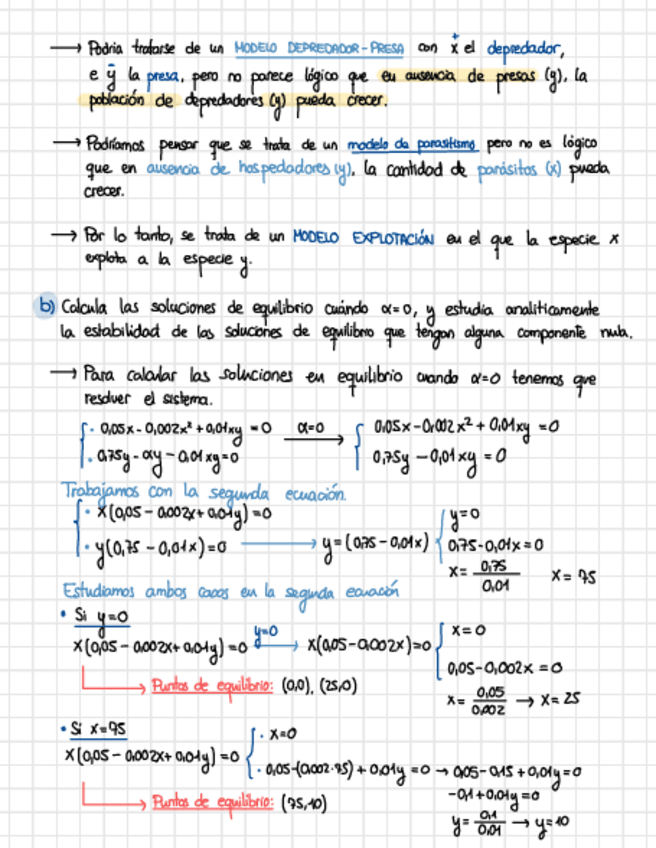 → Podría tratarse de un MODELO DEPREDADOR-PRESA con x⁺ el depredador,
e y⁻ la presa, pero no parece lógico que en ausencia de presas (y), la
población de depredadores (y) pueda crecer.
→ Podríamos pensar que se trata de un modelo de parasitismo pero no es lógico
que en ausencia de hospedadores (y), la cantidad de parásitos (x) pueda
crecer.
→ Por lo tanto, se trata de un MODELO EXPLOTACIÓN en el que la especie x
explota a la especie y.
b) Calcula las soluciones de equilibrio cuándo α=0, y estudia analíticamente
la estabilidad de las soluciones de equilibrio que tengan alguna componente nula.
→ Para calcular las soluciones en equilibrio cuando α=0 tenemos que
resolver el sistema.
· 0,05x - 0,002x² + 0,01xy = 0 α=0 → 0,05x - 0,002x² + 0,01xy = 0
· 0,75y - αy - 0,01xy = 0 0,75y - 0,01xy = 0
Trabajamos con la segunda ecuación.
· x(0,05 - 0,002x + 0,01y) = 0 y=0
· y(0,75 - 0,01x) = 0 → y=(0,75 - 0,01x) 0,75 - 0,01x = 0
x = 0,75/0,01 x = 75
Estudiamos ambos casos en la segunda ecuación
• Si y=0
x(0,05 - 0,002x + 0,01y) = 0 y=0 → x(0,05 - 0,002x) = 0 x=0
0,05 - 0,002x = 0
→ Puntos de equilibrio: (0,0), (25,0)
x = 0,05/0,002 → x = 25
• Si x=75
x(0,05 - 0,002x + 0,01y) = 0 · x=0
· 0,05-(0,002·75) + 0,01y = 0 → 0,05 - 0,15 + 0,01y = 0
-0,1 + 0,01y = 0
→ Puntos de equilibrio: (75,10)
y = 0,1/0,01 → y = 10